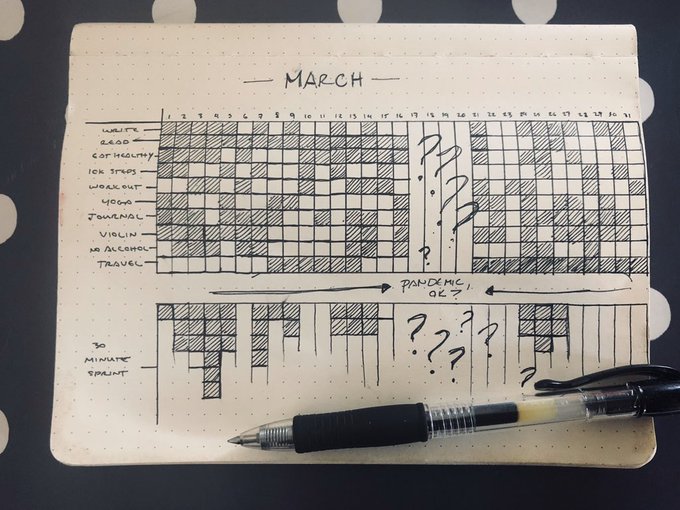 — MARCH —
1 2 3 4 5 6 7 8 9 10 11 12 13 14 15 16 17 18 19 20 21 22 23 24 25 26 27 28 29 30 31
WRITE
READ
EAT HEALTHY
10K STEPS
WORKOUT
YOGA
JOURNAL
VIOLIN
NO ALCOHOL
TRAVEL
? ? ? ? ?
PANDEMIC,
OK?
30
MINUTE
SPRINT
? ? ? ? ? ?